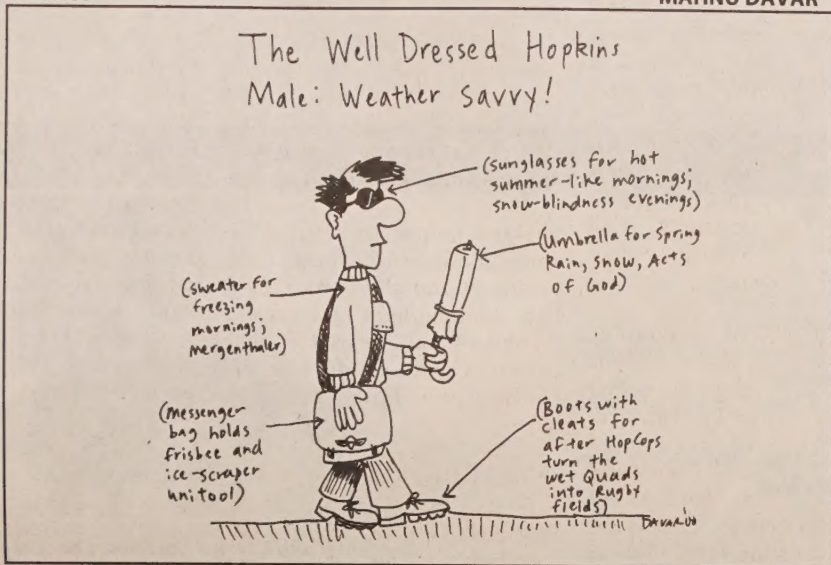 MAHNU DAVAR
The Well Dressed Hopkins
Male: Weather Savvy!
(sunglasses for hot
summer-like mornings;
snow-blindness evenings)
(Umbrella for Spring
Rain, Snow, Acts
of God)
(sweater for
freezing
mornings;
mergenthaler)
(messenger
bag holds
frisbee and
ice-scraper
unitool)
(Boots with
cleats for
after HopCops
turn the
wet Quads
into Rugby
fields)
DAVAR'00